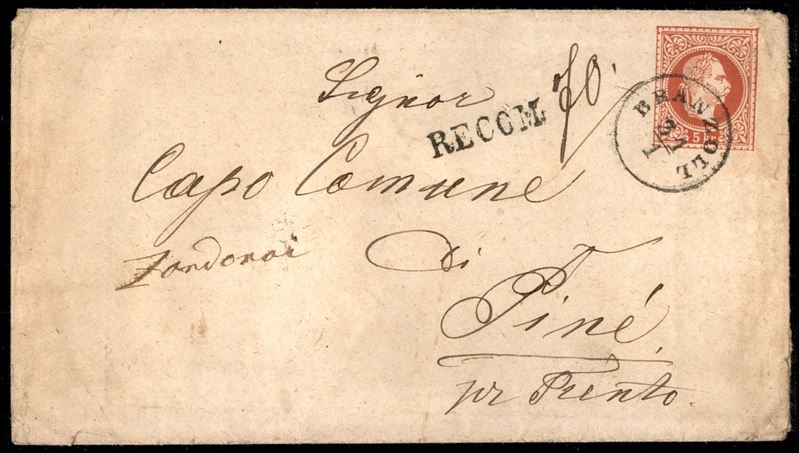 Signor
RECOM 70.
BRANZOLL
5 kr
Capo Comune
Zordonai
di
Piné
pr Trento.